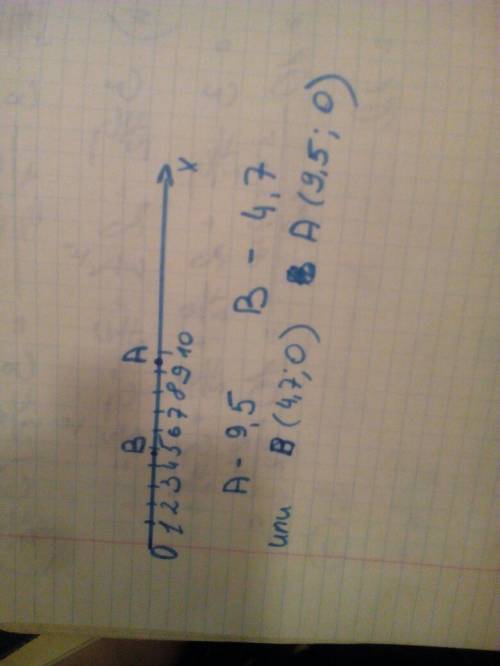 B A
0 1 2 3 4 5 6 7 8 9 10 x
A - 9,5 B - 4,7
или B (4,7; 0) A (9,5; 0)